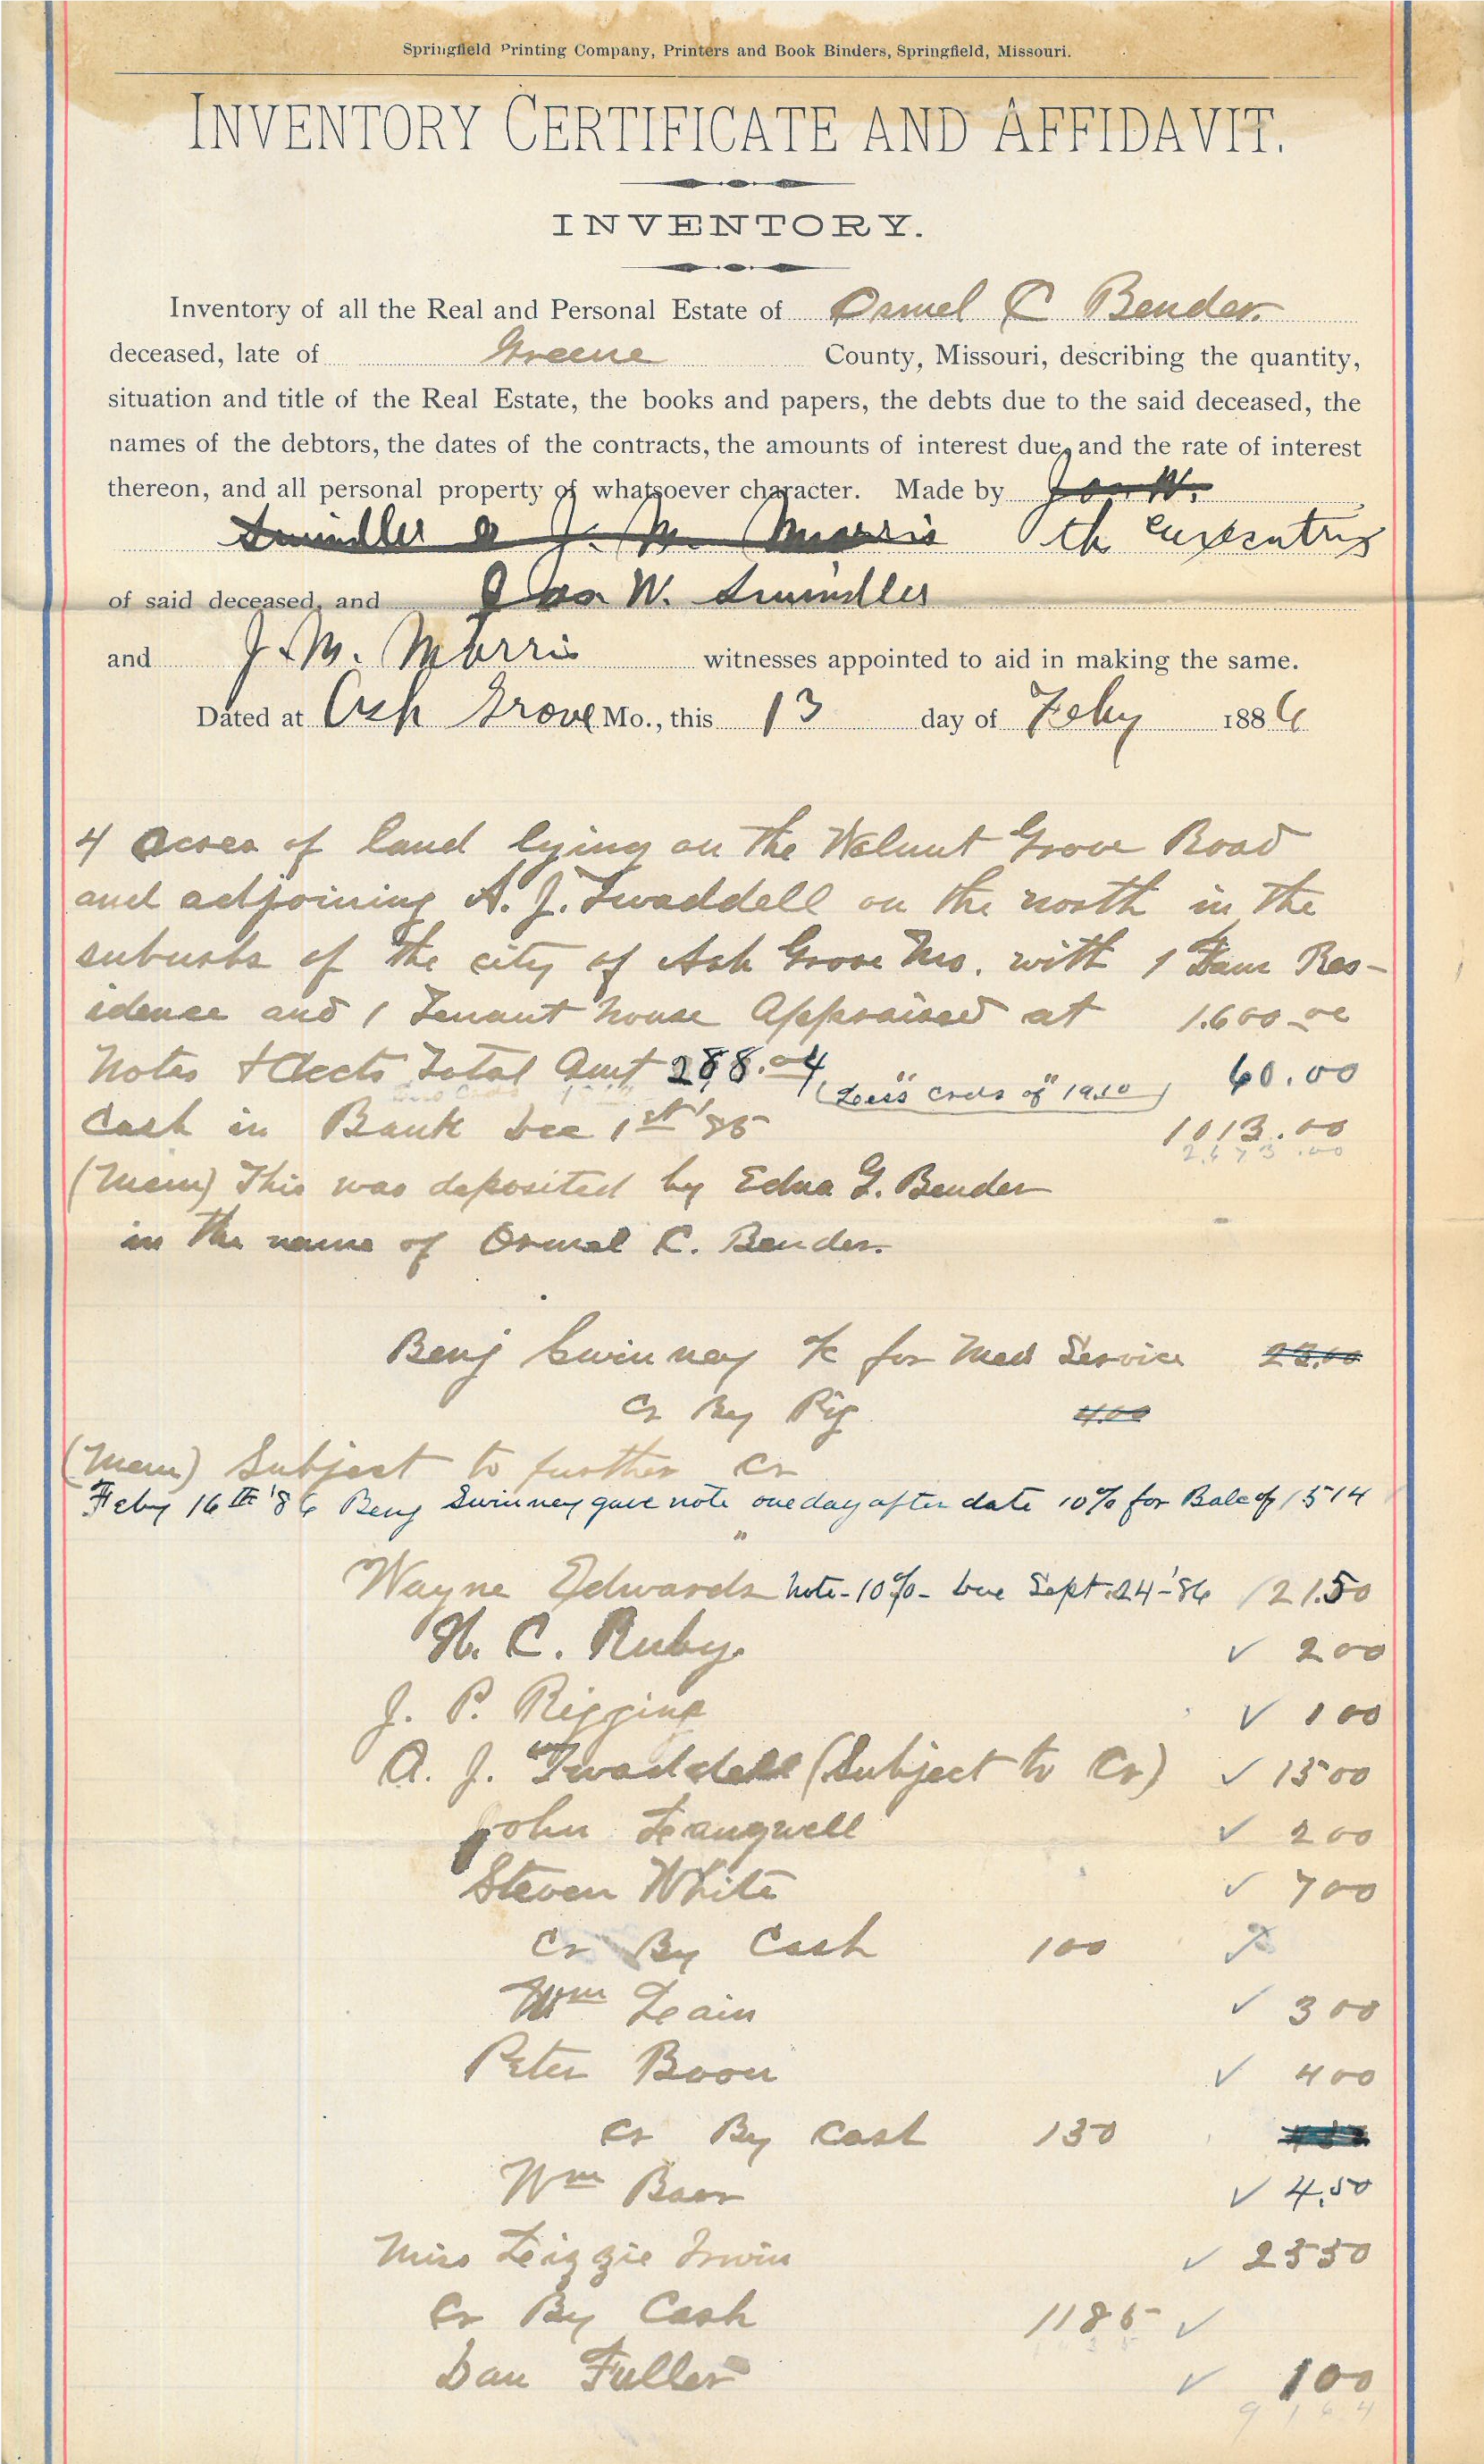 Springfield Printing Company, Printers and Book Binders, Springfield, Missouri.
INVENTORY CERTIFICATE AND AFFIDAVIT.
INVENTORY.
Inventory of all the Real and Personal Estate of Ormel C Bender.
deceased, late of Greene County, Missouri, describing the quantity,
situation and title of the Real Estate, the books and papers, the debts due to the said deceased, the
names of the debtors, the dates of the contracts, the amounts of interest due, and the rate of interest
thereon, and all personal property of whatsoever character. Made by Jas. W.
Swindler & J. M. Morris the executrix
of said deceased, and Jas W. Swindler
and J. M. Morris witnesses appointed to aid in making the same.
Dated at Ash Grove Mo., this 13 day of Feby 1886
4 acres of land lying on the Walnut Grove Road
and adjoining A. J. Twaddell on the north in the
suburbs of the city of Ash Grove Mo. with 1 Fam Res-
idence and 1 Tenant house Appraised at 1.600.00
Notes & Accts Total Amt 288.04 (Less "Creds of" 19.10) 60.00
Cash in Bank Dec 1st '85 1013.00
2,673.00
(Mem) This was deposited by Edna G. Bender
in the name of Ormel C. Bender.
Benj Swinney a/c for Med Service 23.00
Cr By Pig 4.00
(Mem) Subject to further Cr
Feby 16th '86 Benj Swinney gave note one day after date 10% for Bal of 1514
Wayne Edwards Note-10%- Due Sept.24-'86 121.50
H. C. Ruby. ✓ 200
J. P. Rigging ✓ 100
A. J. Twaddell (Subject to Cr) ✓ 1500
John Langwell ✓ 200
Steven White ✓ 700
Cr By Cash 100
Wm Lain ✓ 300
Peter Boon ✓ 400
Cr By Cash 130
Wm Boon ✓ 4.50
Miss Lizzie Irwin ✓ 2550
Cr By Cash 1185 ✓
Dan Fuller ✓ 100
9164